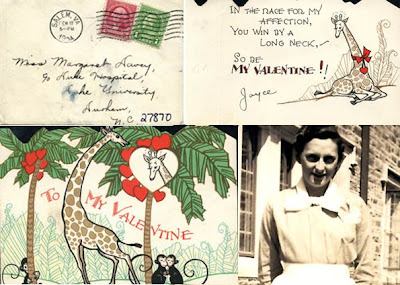 SALEM, VA.
5-PM
Miss Margaret
Duke Hospital,
Duke University,
Durham,
N.C. 27870
IN THE RACE FOR MY
AFFECTION,
YOU WIN BY A
LONG NECK,-
SO BE
MY VALENTINE!!
Joyce
TO MY VALENTINE